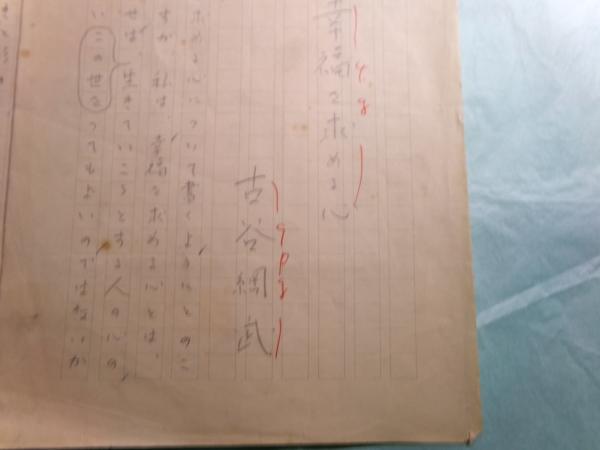 幸福を求める心
古谷綱武
求める心について書くようにとのこ
すが、私は、幸福を求める心とは、
せば、生きていこうとする人の心の
いこの世をつてもよいのではないか